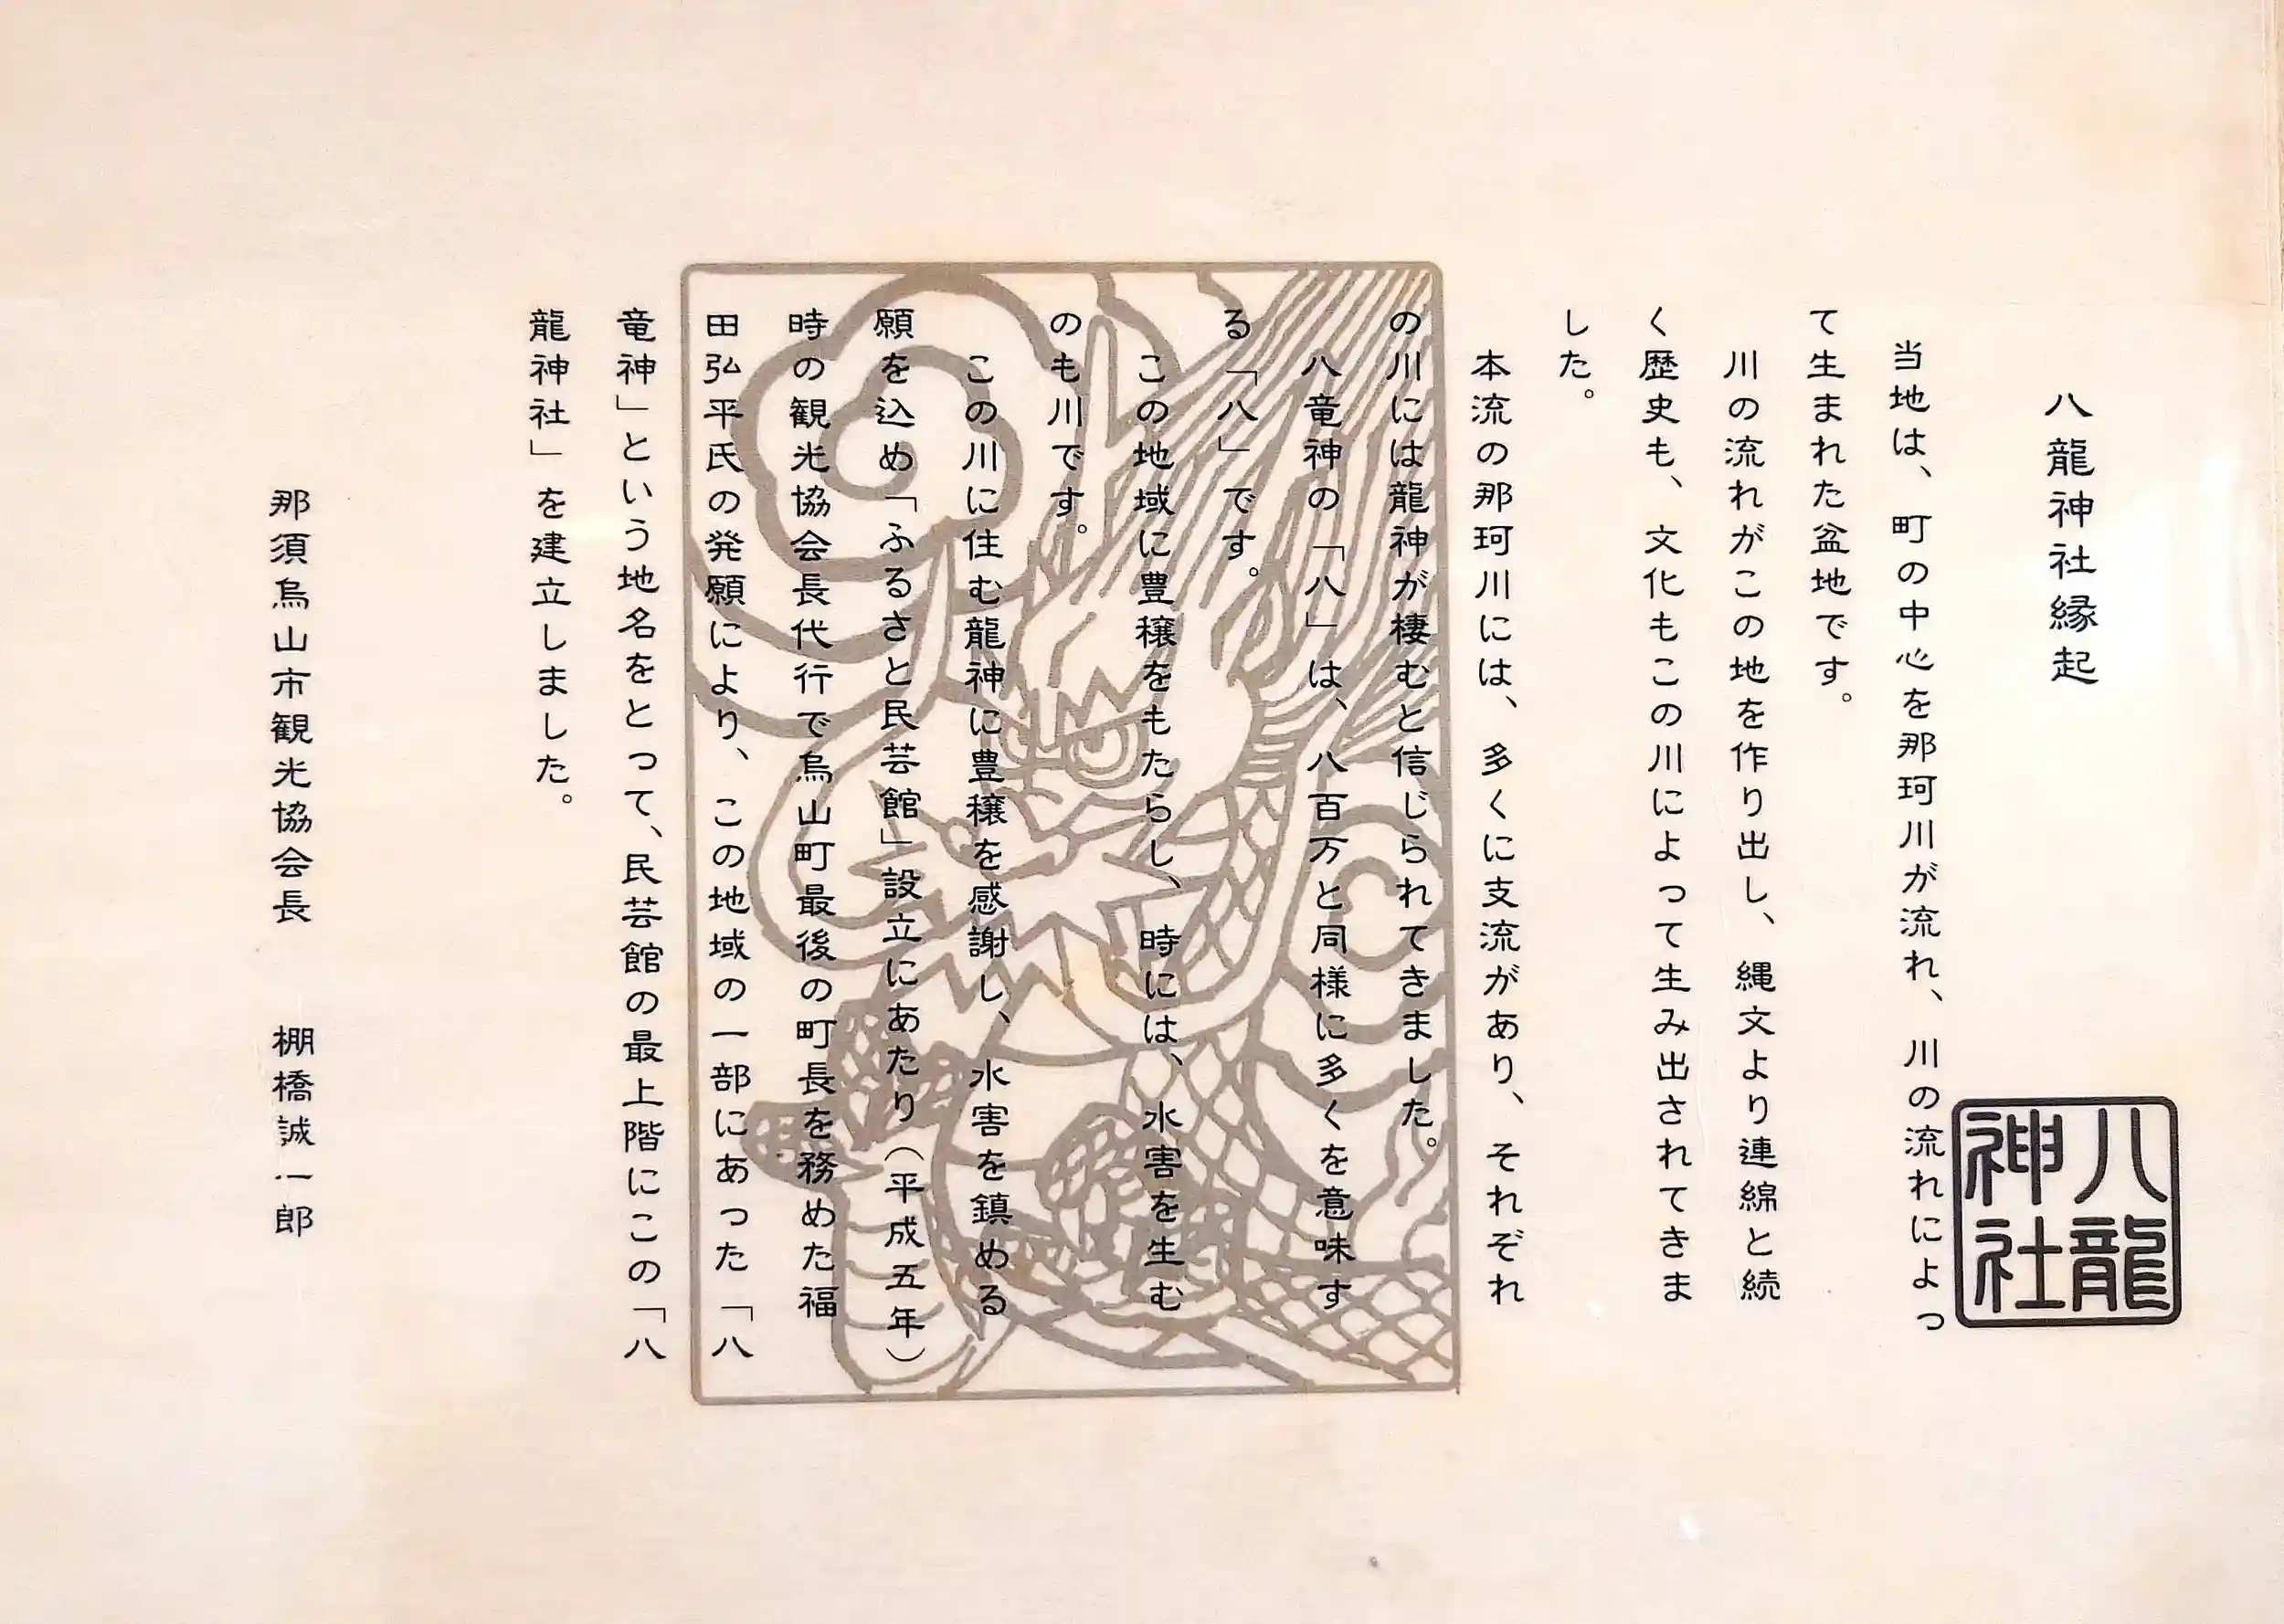 八龍神社縁起
八龍
神社
当地は、町の中心を那珂川が流れ、川の流れによっ
て生まれた盆地です。
川の流れがこの地を作り出し、縄文より連綿と続
く歴史も、文化もこの川によって生み出されてきま
した。
本流の那珂川には、多くに支流があり、それぞれ
の川には龍神が棲むと信じられてきました。
八竜神の「八」は、八百万と同様に多くを意味す
る「八」です。
この地域に豊穣をもたらし、時には、水害を生む
のも川です。
この川に住む龍神に豊穣を感謝し、水害を鎮める
願を込め「ふるさと民芸館」設立にあたり（平成五年）
時の観光協会長代行で烏山町最後の町長を務めた福
田弘平氏の発願により、この地域の一部にあった「八
竜神」という地名をとって、民芸館の最上階にこの「八
龍神社」を建立しました。
那須烏山市観光協会長　棚橋誠一郎